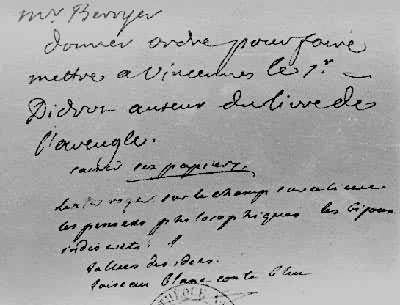 mr Berryer
donner ordre pour faire
mettre a Vincennes le Sr.
Didrot auteur du livre de
l'aveugle.
ses papiers.
sur le champ
les pensees philosophiques les bijoux
indiscrets.
l'allées des idées.
l'oiseau blanc conte bleu